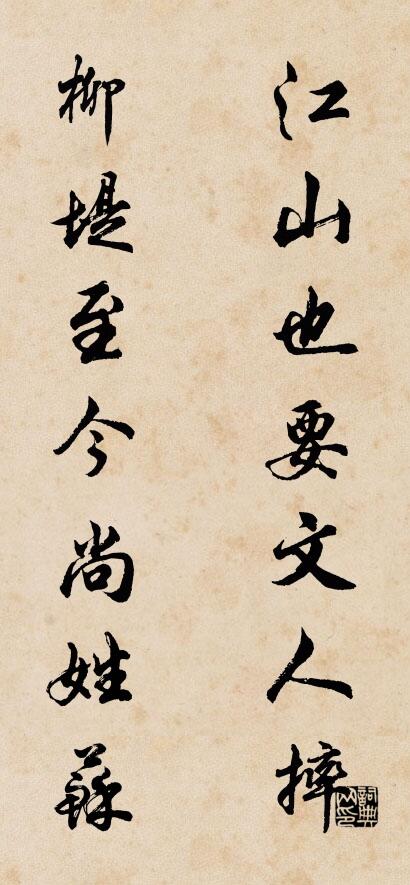 江山也要文人摔
柳堤至今尚姓蘇
詞典